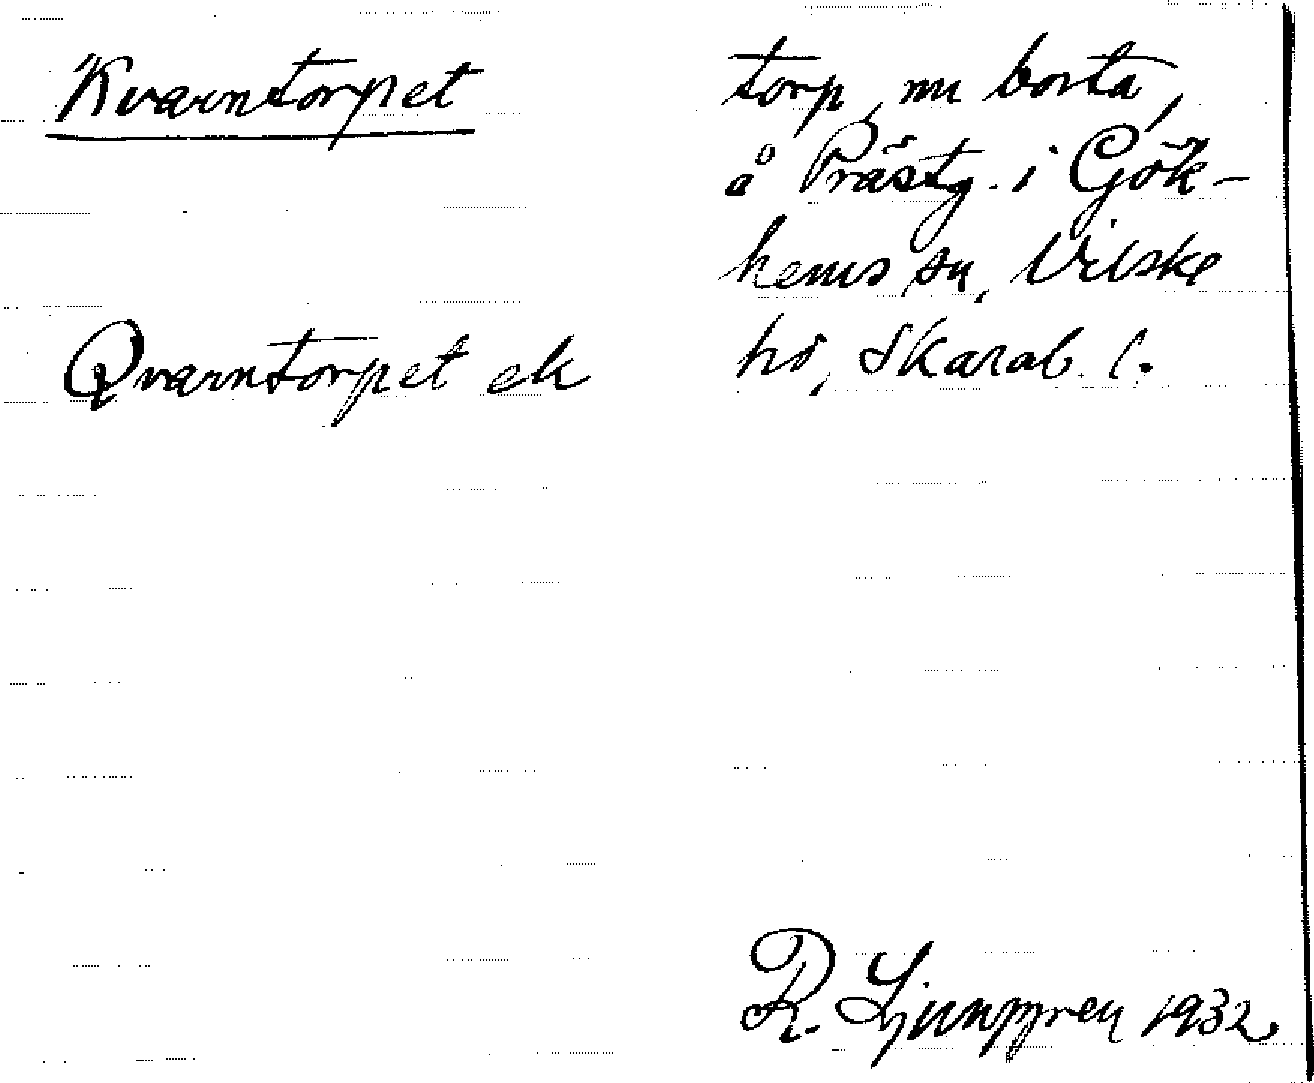 Kvarntorpet
Qvarntorpet ek
torp, nu borta,
å Prästg. i Gök-
hems sn, Vilske
hd, Skarab. l.
R. Ljunggren 1932.